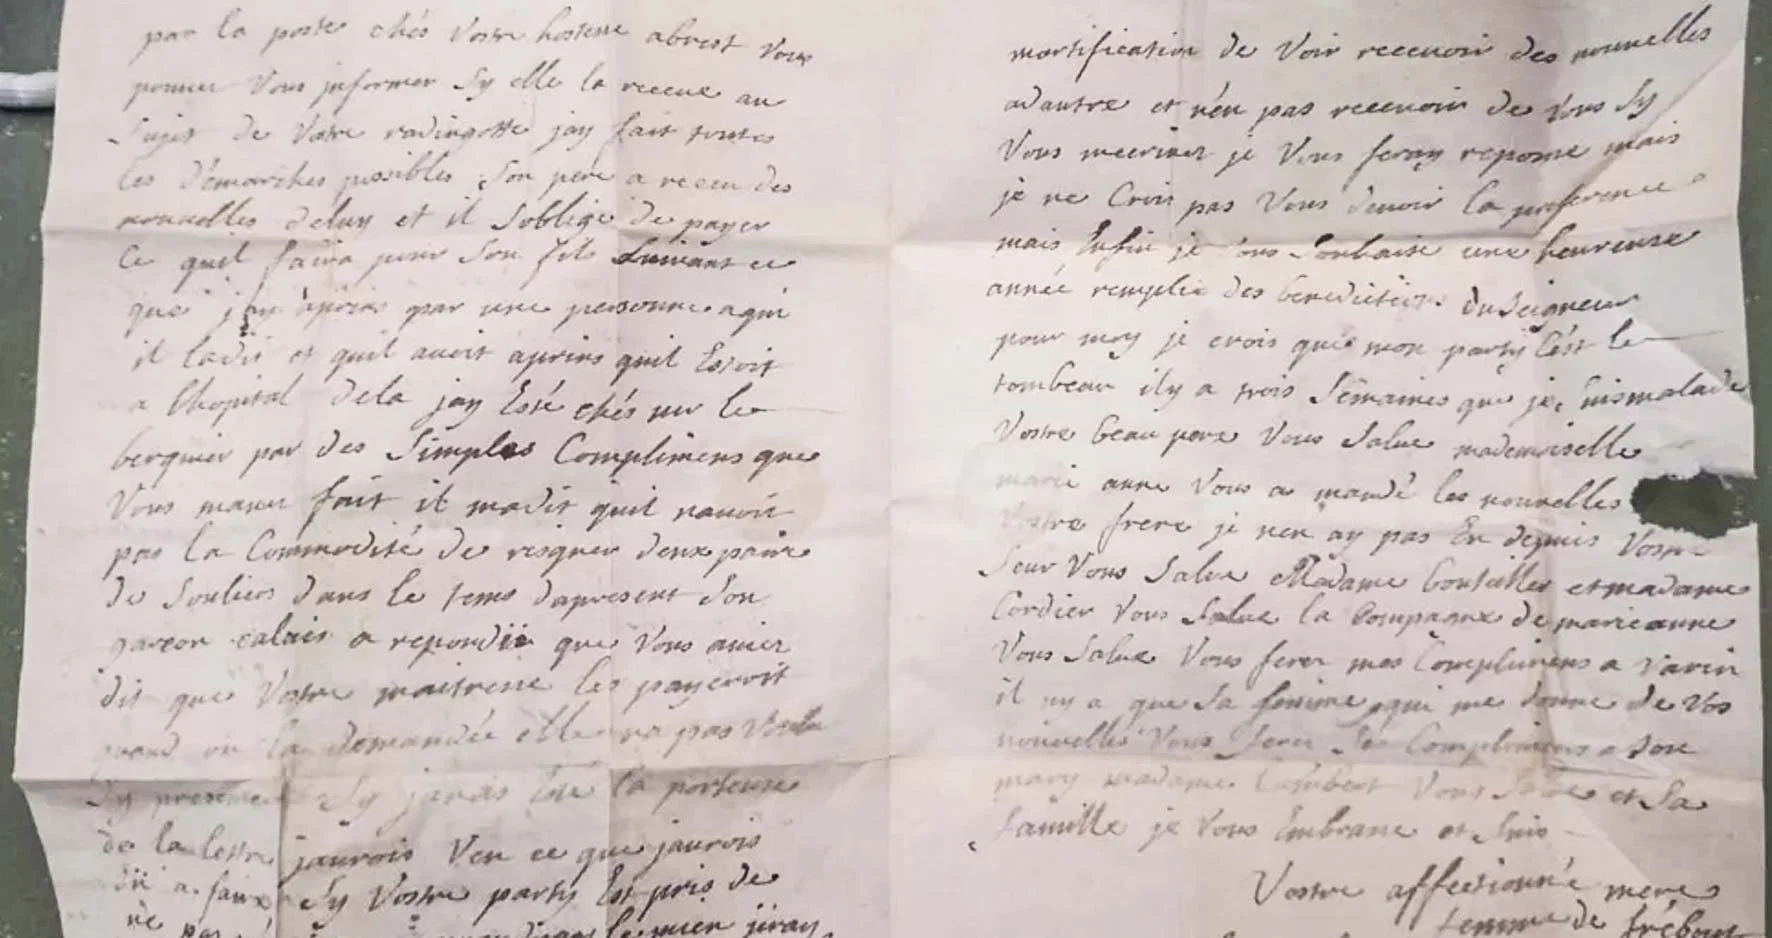 par la poste chés Vostre hostesse abrest vous
pouvez Vous jnformer Sy elle la receue au
Sujet de Votre radingotte jay fait toutes
les démarches possibles Son pere a receu des
nouvelles deluy et il Soblige de payer
Ce quil faira pour Son fils Suivant ce
que jay apris par une personne aqui
il ladit et quil avoit aprins quil Estoit
a lhopital dela jay Esté chés mr le
berquier par des Simples Complimens que
Vous mavez fait il madit quil navoit
pas la Commodité de risquer deux paire
de Souliers dans le tems dapresent Son
garcon calais a repondu que Vous aviez
dit que Vostre maitresse les payeroit
quand on la demandée elle na pas Voulu
Sy presenter Sy javois Esté la porteuse
de la lettre jaurois Veu ce que jaurois
du a faire Sy Vostre party Est pris de
ne pas le mien jiray
mortification de Voir recevoir des nouvelles
adautre et n'en pas recevoir de Vous Sy
Vous mecrivez je Vous feray reponse mais
je ne Crois pas Vous devoir la preference
mais Enfin je Vous Souhaise une heureuse
année remplie des benedictions du Seigneur
pour moy je crois que mon party C'est le
tombeau il y a trois Semaines que je Suis malade
Vostre beau pere Vous Salue mademoiselle
marie anne Vous a mandé les nouvelles
Vostre frere je nen ay pas Eu depuis Vostre
Seur Vous Salue Madame bouteiller et madame
Cordier Vous Salue la Compagne de marieanne
Vous Salue Vous ferez mes Complimens a Varin
il ny a que Sa femme qui me donne de Vos
nouvelles Vous ferez Ses Complimens a Son
mary madame Lembert Vous Salue et Sa
famille je Vous Embrasse et Suis
Vostre affectionné mere
femme de frébourt